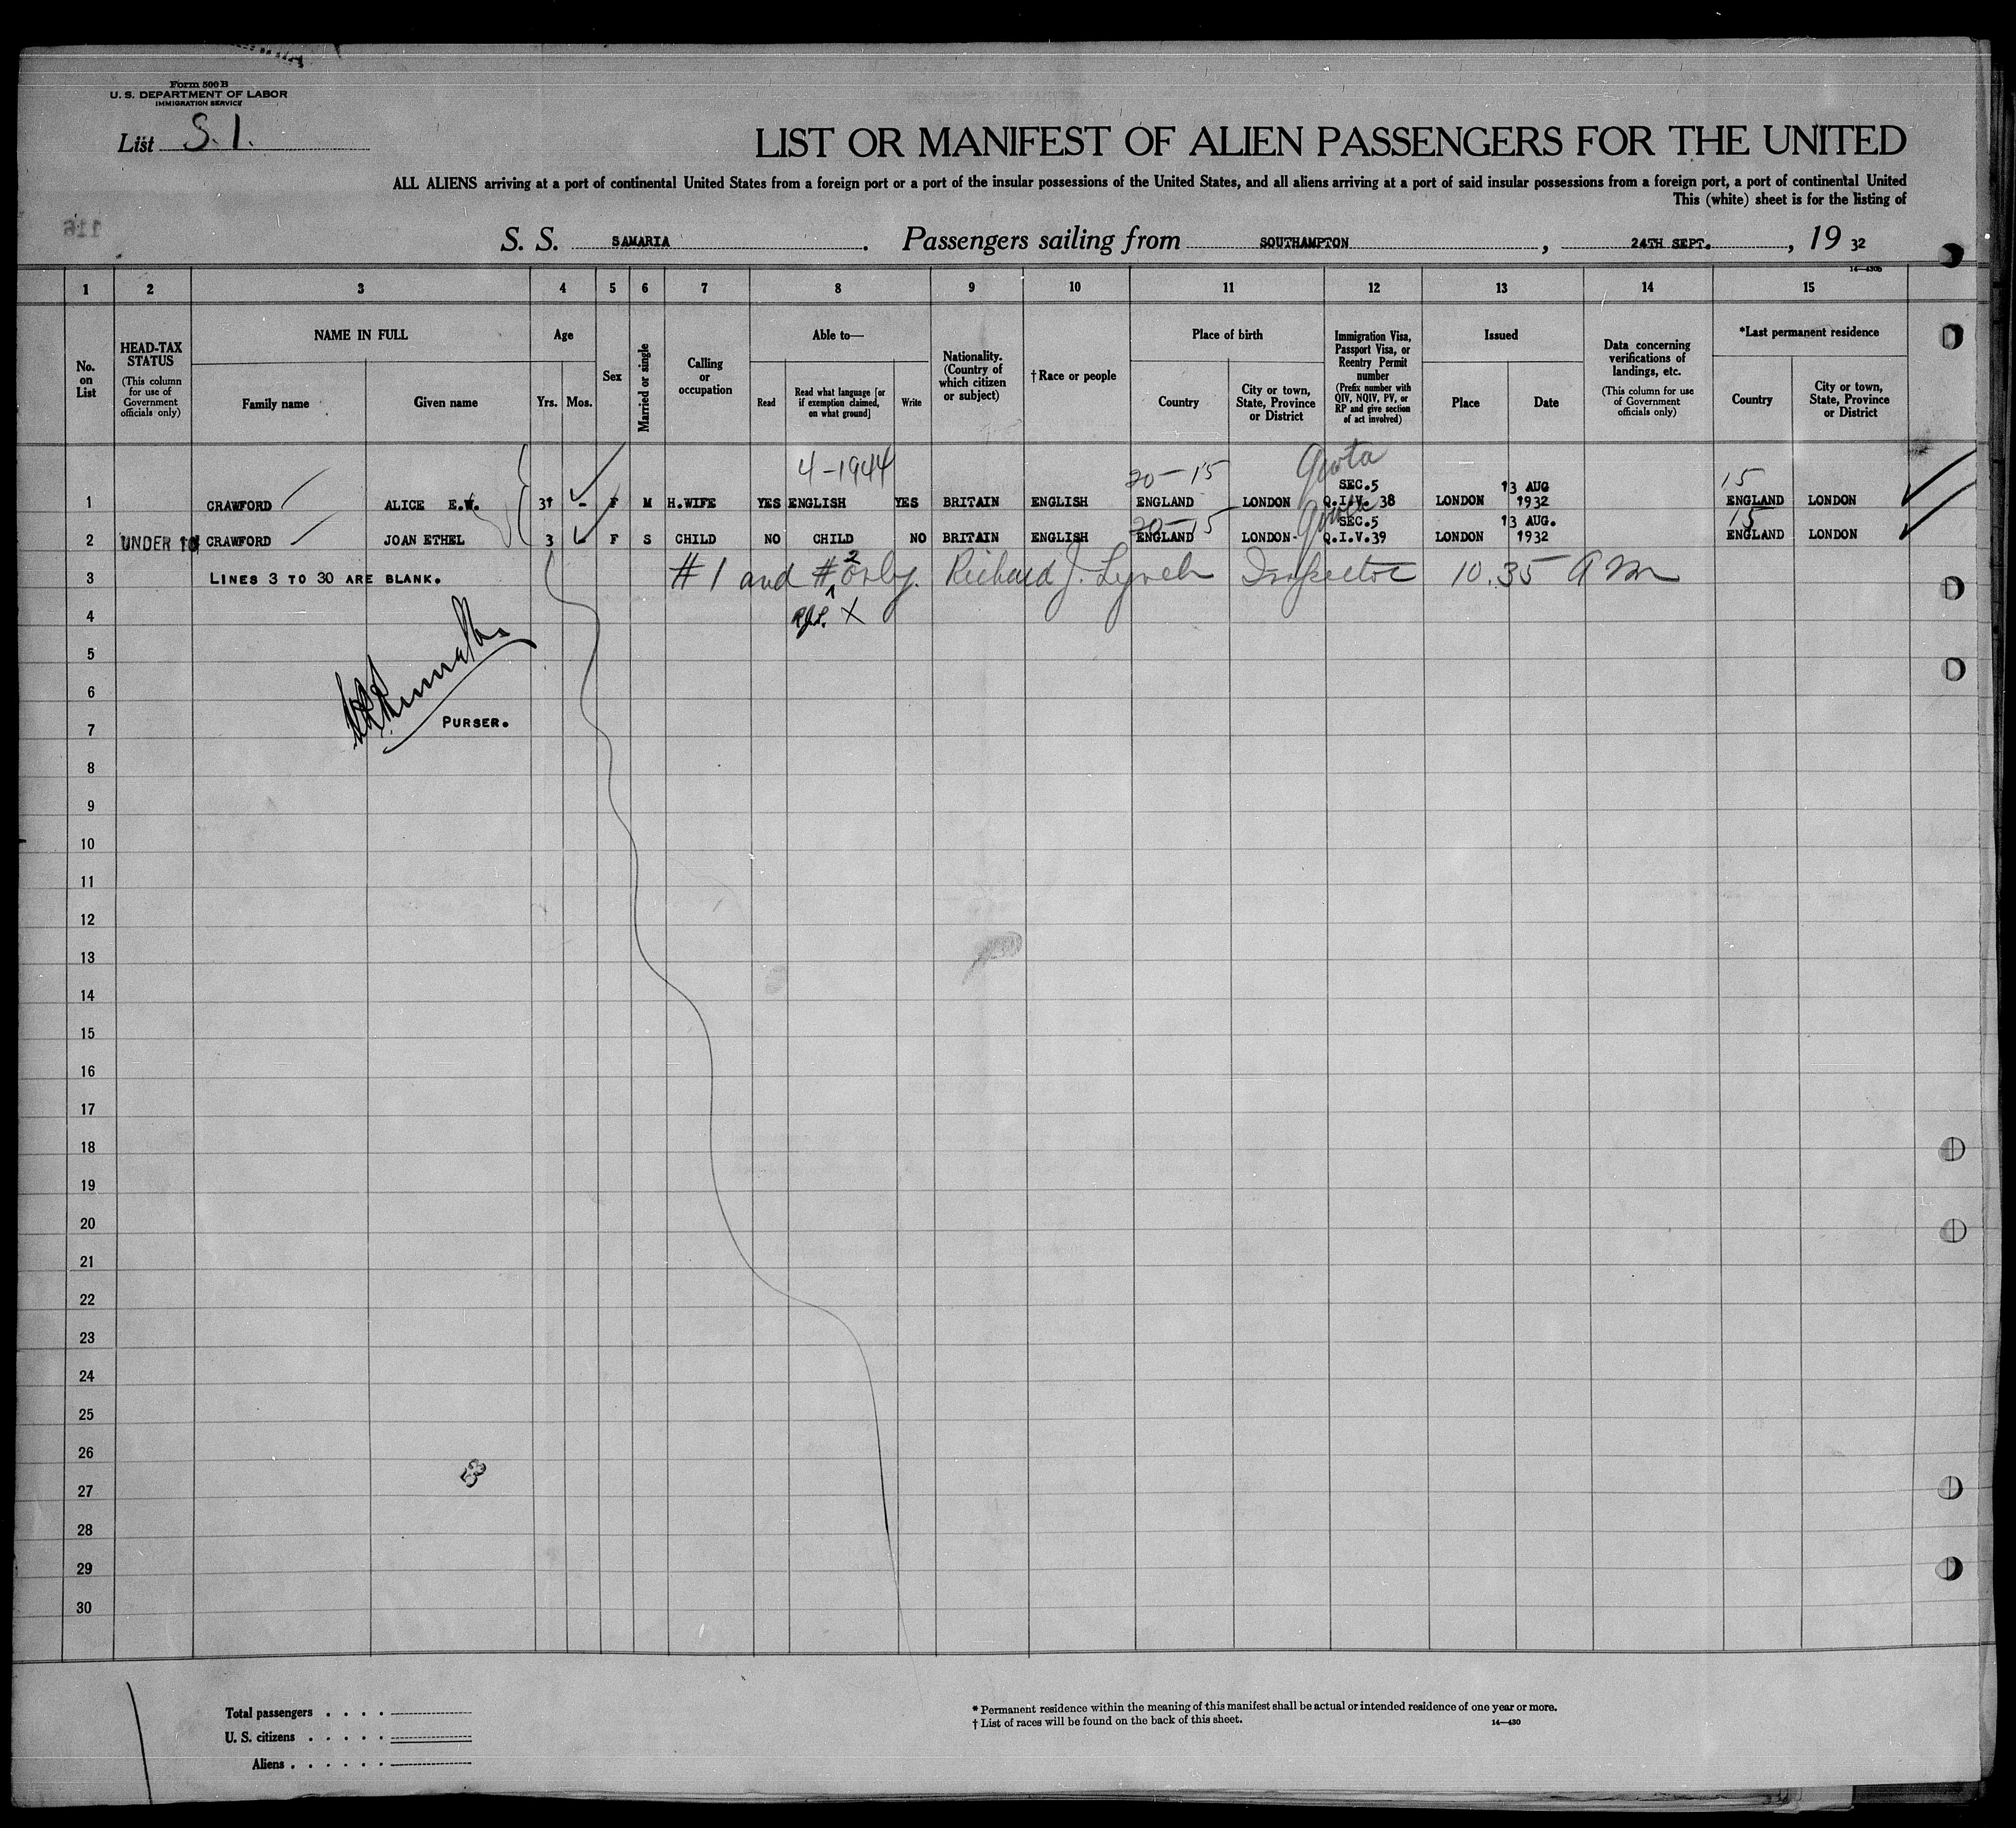 Form 500 B
U. S. DEPARTMENT OF LABOR
IMMIGRATION SERVICE
List S. 1.
LIST OR MANIFEST OF ALIEN PASSENGERS FOR THE UNITED
ALL ALIENS arriving at a port of continental United States from a foreign port or a port of the insular possessions of the United States, and all aliens arriving at a port of said insular possessions from a foreign port, a port of continental United
This (white) sheet is for the listing of
116
S. S. SAMARIA. Passengers sailing from SOUTHAMPTON, 24TH SEPT., 19 32
14—430b
1 2 3 4 5 6 7 8 9 10 11 12 13 14 15
No. on List
HEAD-TAX STATUS
(This column for use of Government officials only)
NAME IN FULL
Family name
Given name
Age
Yrs. Mos.
Sex
Married or single
Calling or occupation
Able to—
Read
Read what language [or if exemption claimed, on what ground]
Write
Nationality. (Country of which citizen or subject)
† Race or people
Place of birth
Country
City or town, State, Province or District
Immigration Visa, Passport Visa, or Reentry Permit number
(Prefix number with QIV, NQIV, PV, or RP and give section of act involved)
Issued
Place
Date
Data concerning verifications of landings, etc.
(This column for use of Government officials only)
*Last permanent residence
Country
City or town, State, Province or District
4-1944 20-15 Quota 15
SEC.5 13 AUG
1 CRAWFORD ALICE E.W. 31 - F M H.WIFE YES ENGLISH YES BRITAIN ENGLISH ENGLAND LONDON Q.I.V. 38 LONDON 1932 ENGLAND LONDON
20-15 Quota SEC.5 13 AUG. 15
2 UNDER 16 CRAWFORD JOAN ETHEL 3 - F S CHILD NO CHILD NO BRITAIN ENGLISH ENGLAND LONDON- Q.I.V.39 LONDON 1932 ENGLAND LONDON
3 LINES 3 TO 30 ARE BLANK. #1 and #2 only. Richard J. Lynch Inspector 10.35 AM
4 RJL. X
5
6
7 PURSER.
8
9
10
11
12
13
14
15
16
17
18
19
20
21
22
23
24
25
26
27
28
29
30
Total passengers . . . .
U. S. citizens . . . . .
Aliens . . . . . .
* Permanent residence within the meaning of this manifest shall be actual or intended residence of one year or more.
† List of races will be found on the back of this sheet.
14—430